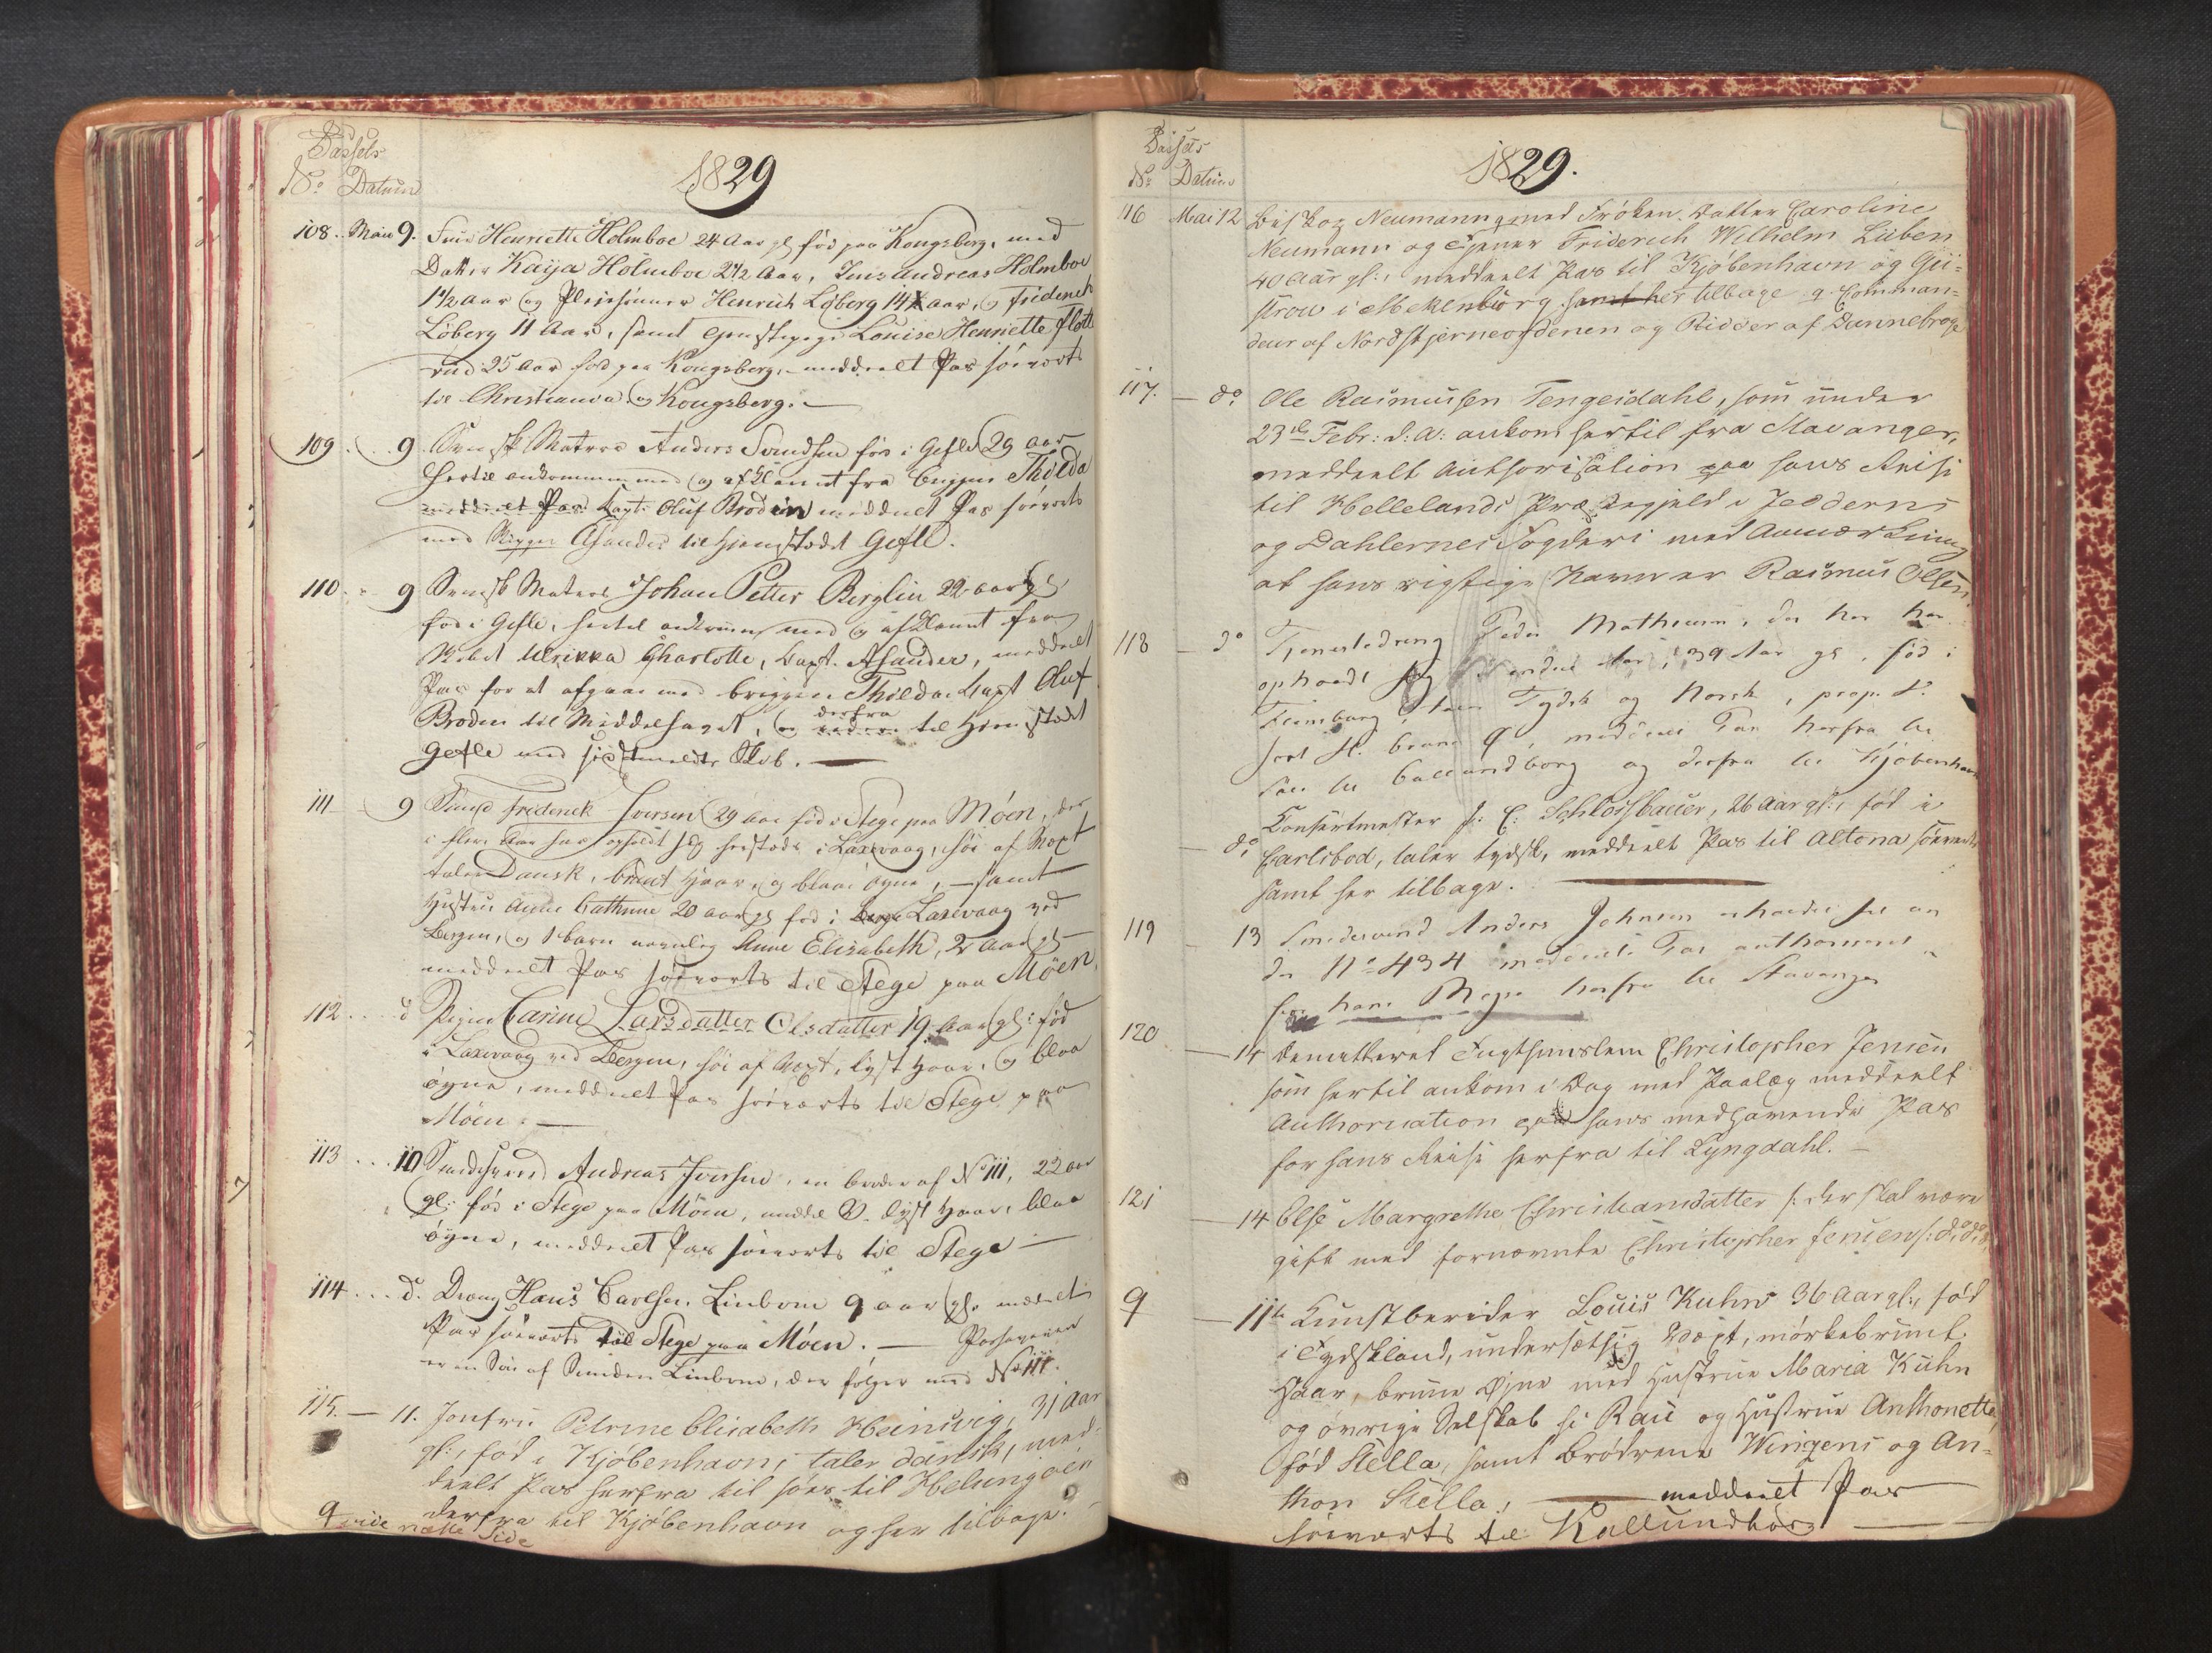 Passets
No Datum
1829
108. Mai 9. Frue Henriette Holmboe 24 Aar gl fød paa Kongsberg, med
Datter Kaija Holmboe 2 1/2 Aar, Jens Andreas Holmboe
1 1/2 Aar og Pleiesønner Henrich Løberg 14 aar, og Friderich
Løberg 11 Aar, samt Louise Henriette Flotte
rud 25 Aar fød paa Kongsberg, meddeelt Pas søeverts
til Christiania og Kongsberg.
109 9 Svensk Matros Anders Svendsen fød i Gefle 29 aar
hertil ankommen med og afskannt fra Briggen Thilda
meddeelt Pas Capt. Oluf Brodin meddeelt Pas søeverts
med Skipper Asander til Hjemstedet Gefle.
110 9 Svensk Matros Johan Petter Berglin 22 aar gl
fød i Gefle, hertil ankommen med og afskannt fra
Skibet Ulrikka Charlotte, Capt. Asander, meddeelt
Pas for at afgaae med Briggen Thilda Capt Oluf
Brodin til Middelhavet, og derfra til Hjemstedet
Gefle med sidstmeldte Skib.
111 9 Smed Friderick Iversen 29 aar fød i Stege paa Møen, der
i flere Aar har opholdt sig herstæds i Laxevaag, høi af Vext
taler Dansk, bruunt Haar, og blaae øyne, samt
Hustru Anne Cathrine 20 aar gl fød i Laxevaag ved
Bergen, og 1 barn navnlig Anne Elisabeth, 2 aar gl
meddeelt Pas søeverts til Stege paa Møen.
112 d Pigen Carine Larsdatter Olsdatter 19 Aar gl: fød
i Laxevaag ved Bergen, høi af Vext, lyst Haar, og blaa
øyne, meddeelt Pas søeverts til Stege paa
Møen.
113 10 Smedesvend Andreas Iversen, en broder af No 111, 22 aar
gl: fød i Stege paa Møen, middel V. lyst Haar, blaa
øyne, meddeelt Pas søeverts til Stege
114 d. Dreng Hans Carlsen Linbom 9 aar gl. meddeelt
Pas søeverts til Stege paa Møen. Passageren
er en Søn af Smeden Linbom, der følger med No 111.
115. 11. Jomfru Petrine Elisabeth Heinsvig, 31 Aar
gl:, fød i Kjøbenhavn, taler dansk, med-
deelt Pas herfra til søes til Helsingøer
derfra til Kjøbenhavn og her tilbage.
9 vide næste Side
Passets
No Datum
1829.
116 Mai 12 Biskop Neumann q med Frøken Datter Caroline
Neumann og Tjener Friderich Wilhelm Lüben
40 Aar gl:, meddeelt Pas til Kjøbenhavn og Gü-
strow i Mekenborg samt her tilbage q. Comman-
deur af Nordstjerneordenen og Ridder af Dannebroge
117. do Ole Rasmussen Tengesdahl, som under
23de Febr: d: A: ankom hertil fra Stavanger,
meddeelt Authorisation paa hans Reise
til Hellelands Præstegjeld i Jedderns
og Dahlernes Fogderi med Anmærkning
at hans rigtige Navn er Rasmus Olsen.
118 do Tjenestedreng Peder Mathiesen, der her har
ophoedt sig Aar, 39 Aar gl, født i
taler Tydsk og Norsk,
sort H. brune Ø, meddeelt Pas herfra til
Søes til Callundborg og derfra til Kjøbenhavn
do Consertmester J: C: Schlossbauer, 26 Aar gl:, fød i
Carlsbad, taler tydsk, meddeelt Pas til Altona søeverts
samt her tilbage.
119 13 Smedesvend Anders Johnsen
No 434 meddeelt Pas
hans Reyse herfra til Stavanger
120 14 Demitteret Tugthuuslem Christopher Jensen
som hertil ankom i Dag med Paalæg meddeelt
Authorisation paa hans medhavende Pas
for hans Reise herfra til Lyngdahl.
121 14 Else Margrethe Christiansdatter /: der skal være
gift med fornævnte Christopher Jensen :/ do do
9 11te Kunstberider Louis Kuhn 36 Aar gl:, fød
i Tydskland, undersætsig Væxt, mørkebrunt
Haar, brune Øjne med Hustrue Maria Kühn
og øvrige Selskab Rau og Hustrue Anthonette
fød Stella, samt Brødrene Winzens og An-
thon Stella, meddeelt Pas
søeverts til Kallundborg